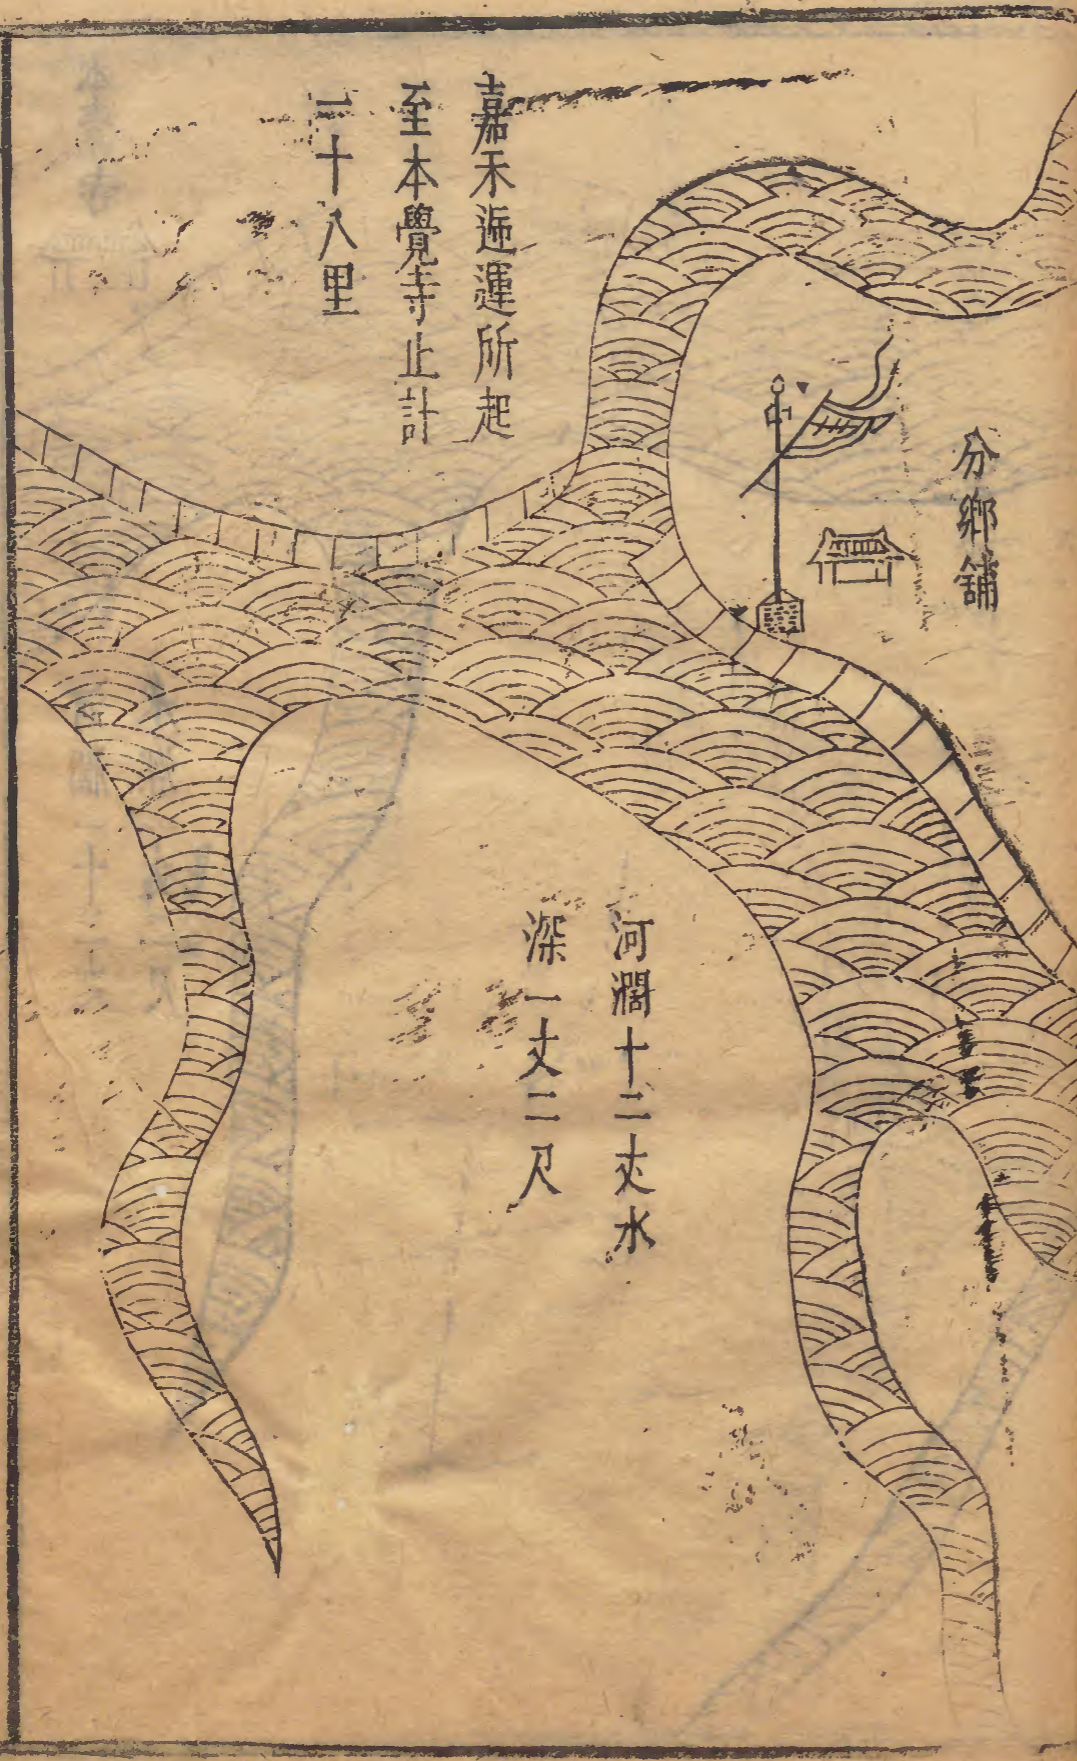 分鄉舖
嘉禾遞運所起
至本覺寺止計
二十八里
河濶十二丈水
深一丈二尺